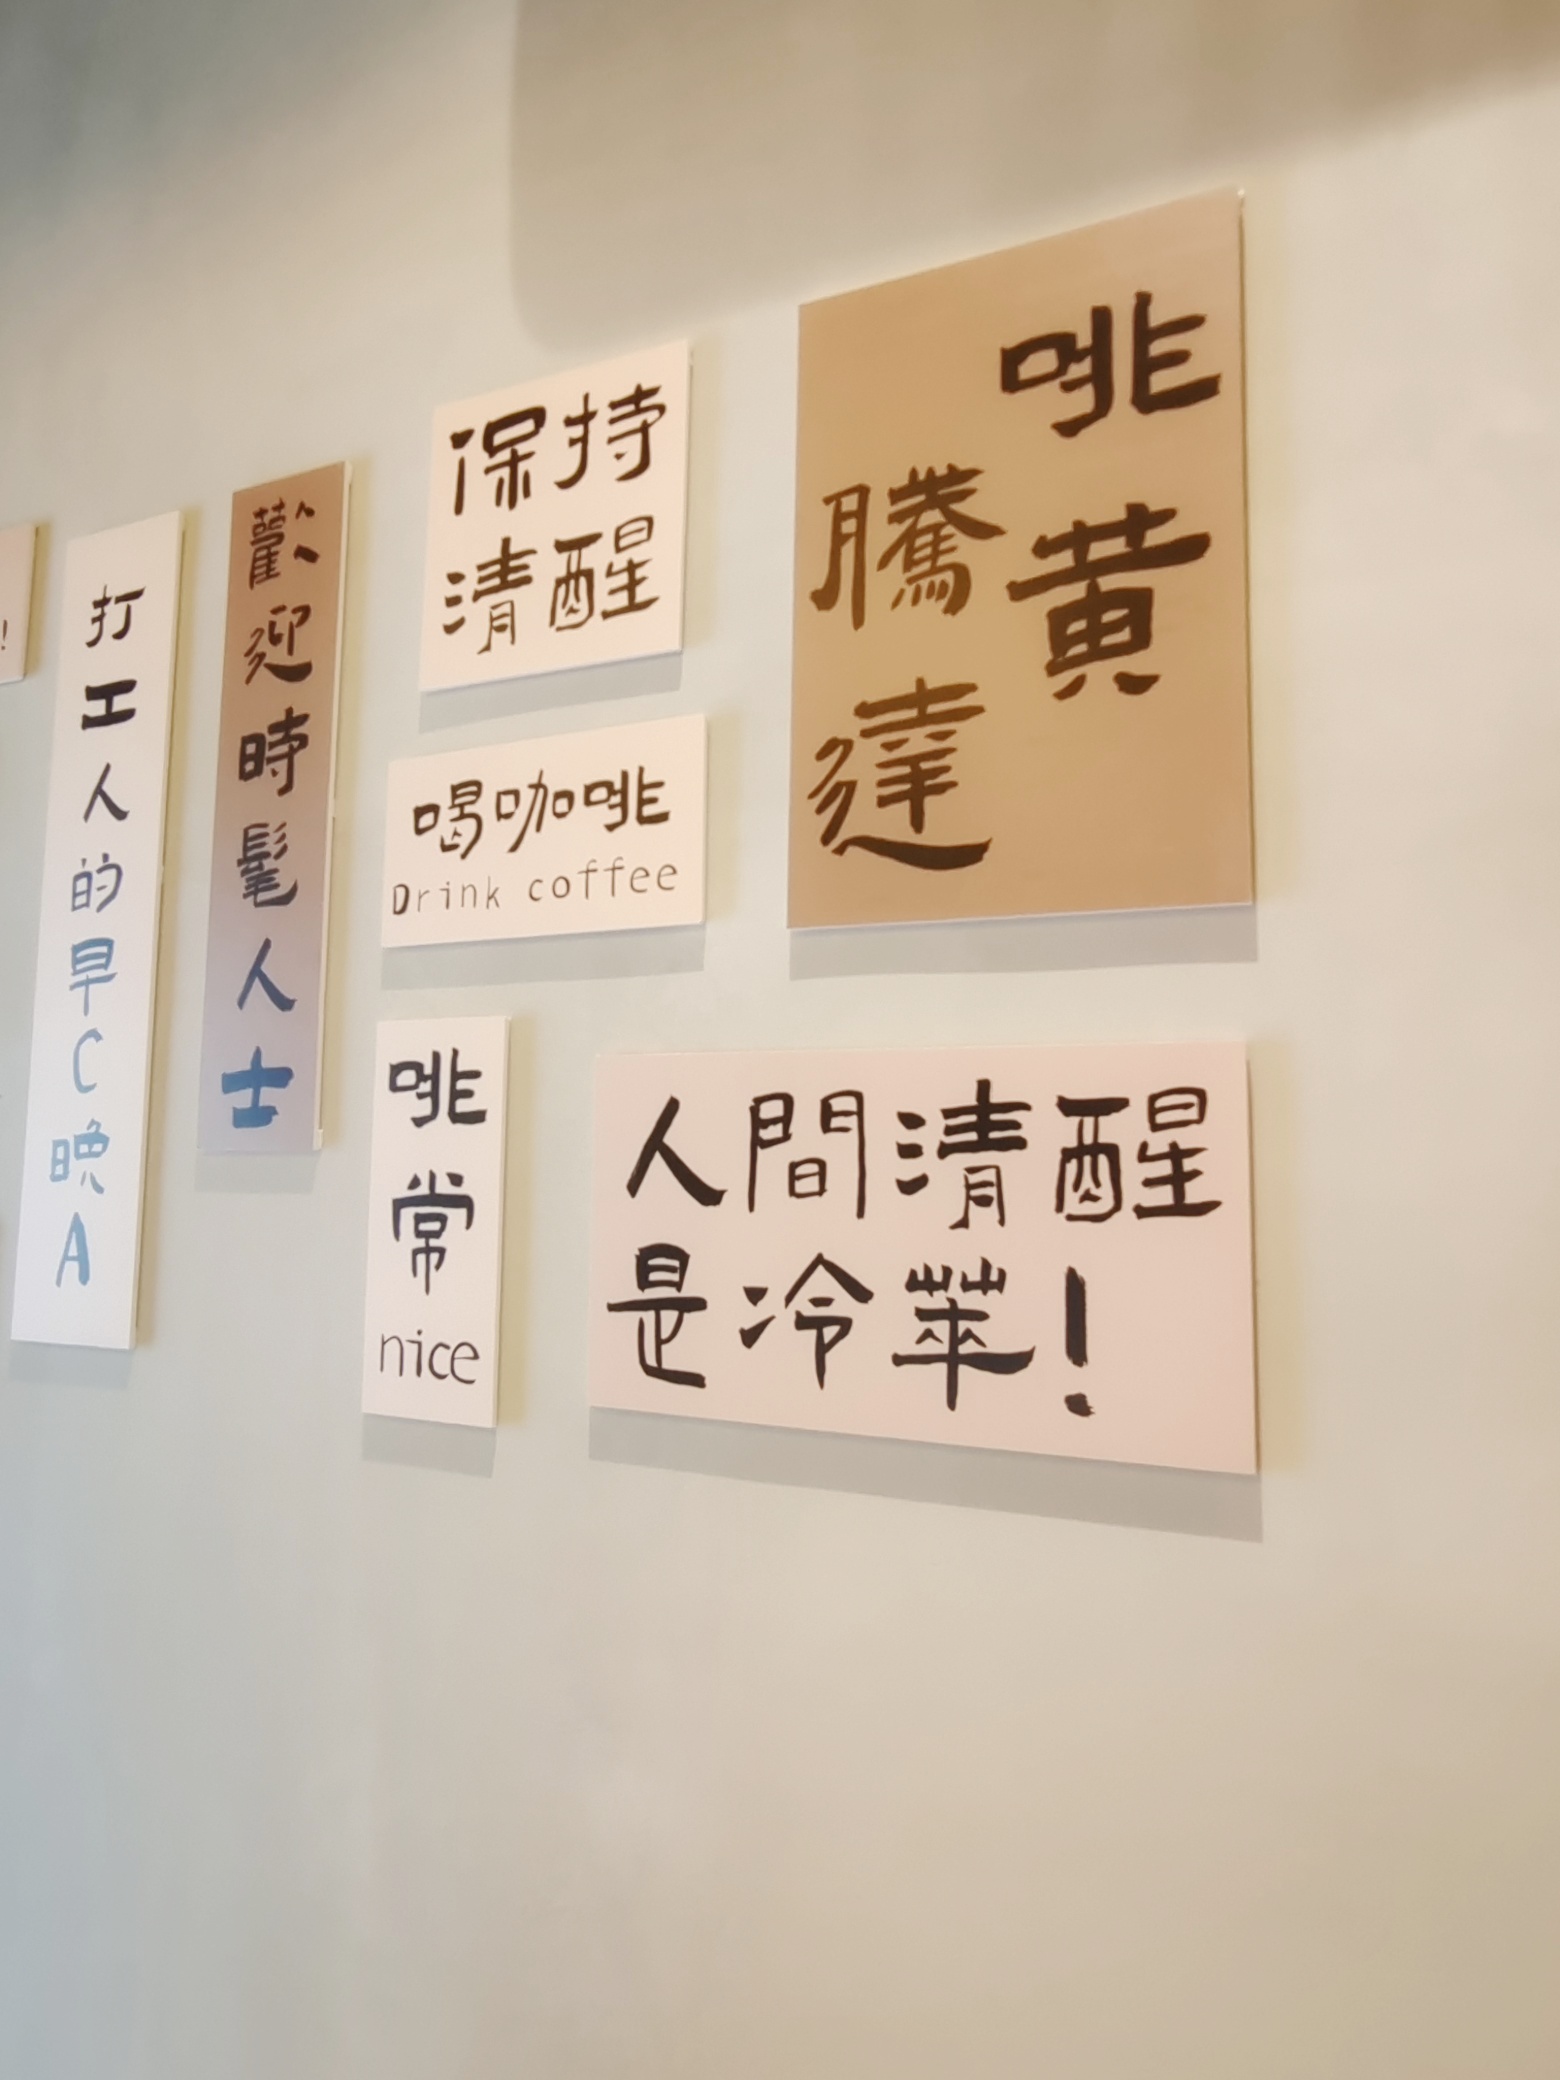 !
打工人的早C晚A
歡迎時髦人士
保持
清醒
喝咖啡
Drink coffee
啡常nice
啡黄
騰達
人間清醒
是冷萃!